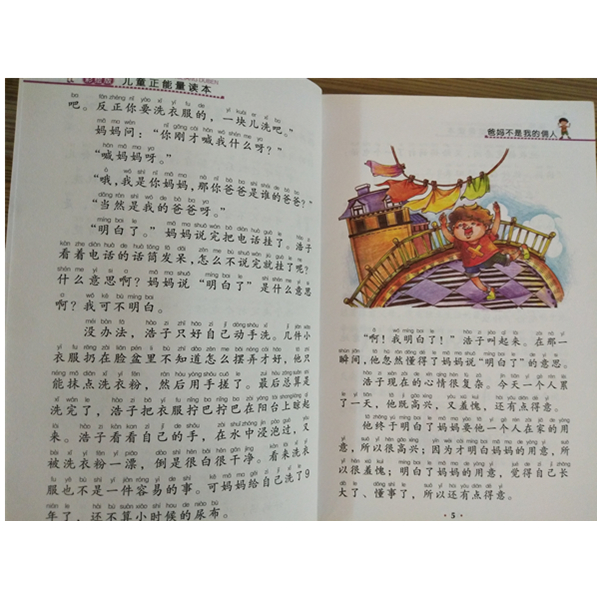 儿童正能量读本
吧。反正你要洗衣服的，一块儿洗吧。”
妈妈问：“你刚才喊我什么呀？”
“喊妈妈呀。”
“哦，我是你妈妈，那你爸爸是谁的爸爸？”
“当然是我的爸爸呀。”
“明白了。”妈妈说完把电话挂了。浩子
看着电话的话筒发呆，怎么不说完就挂了呢？
什么意思啊？妈妈说“明白了”是什么意思
啊？我可不明白。
没办法，浩子只好自己动手洗。几件小
衣服扔在脸盆里不知道怎么摆弄才好，他只
能抹点洗衣粉，然后用手搓了。最后总算是
洗完了，浩子把衣服拧巴拧巴在阳台上晾起
来。浩子看看自己的手，在水中浸泡过，又
被洗衣粉一漂，倒是很白很干净。看来洗衣
服也不是一件容易的事。可妈妈给自己洗了9
年了，还不算小时候的尿布。
爸妈不是我的佣人
“啊！我明白了！”浩子叫起来。在那一
瞬间，他忽然懂得了妈妈说“明白了”的意思。
浩子现在的心情很复杂。今天一个人累
了一天，他既高兴，又羞愧，还有点得意。
他终于明白了妈妈要他一个人在家的用
意，所以很高兴；因为才明白妈妈的用意，所
以很羞愧；明白了妈妈的用意，觉得自己长
大了、懂事了，所以还有点得意。
· 5 ·